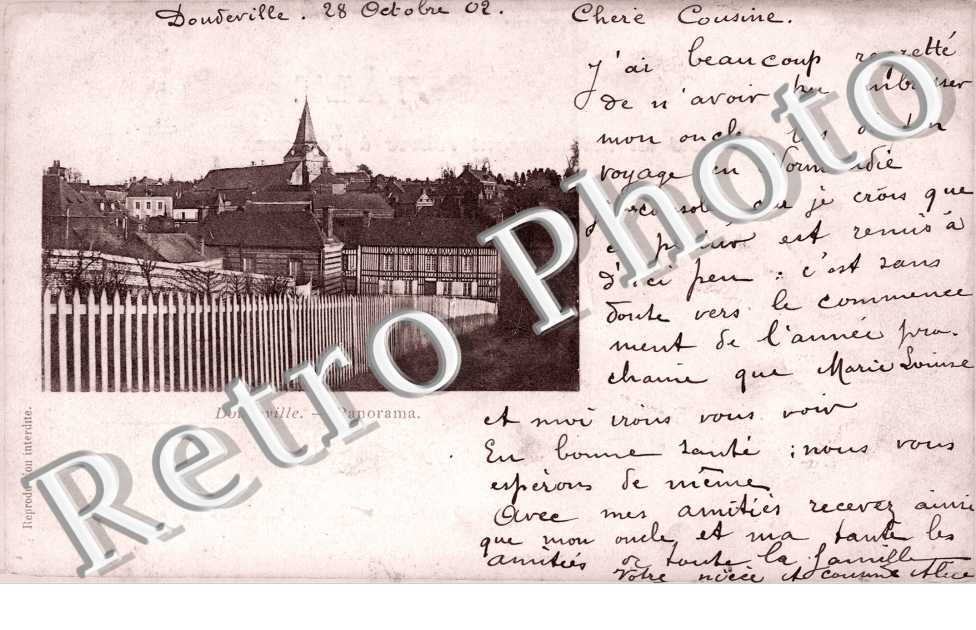 Doudeville. 28 Octobre 02.
Chère Cousine.
J'ai beaucoup regretté
de n'avoir pu embrasser
mon oncle
voyage en Normandie
que je crois que
est remis à
d'ici peu : c'est sans
doute vers le commence
ment de l'année pro-
chaine que Marie Louise
et moi irons vous voir
En bonne santé ; nous vous
espérons de même
Avec mes amitiés recevez ainsi
que mon oncle et ma tante les
amitiés de toute la famille
Votre nièce et cousine Alice
Doudeville. — Panorama.
Reproduction interdite.
Retro Photo